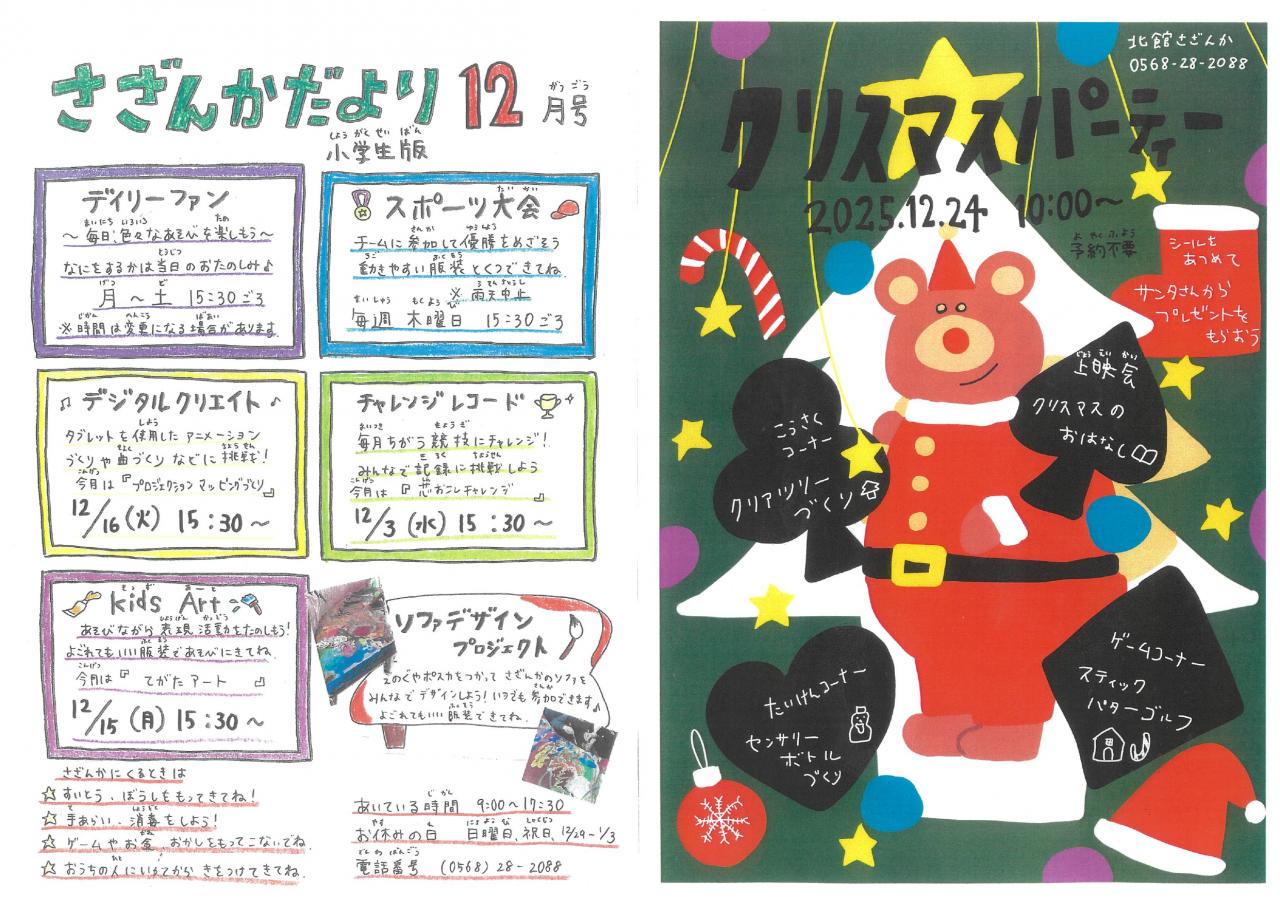 さざんかだより 12月号
小学生版
デイリーファン
～毎日、色々なあそびを楽しもう～
なにをするかは当日のおたのしみ♪
月～土 15:30ごろ
※時間は変更になる場合があります。
スポーツ大会
チームに参加して優勝をめざそう
動きやすい服装とくつできてね。
※雨天中止
毎週 木曜日 15:30ごろ
♫ デジタルクリエイト ♪
タブレットを使用したアニメーション
づくりや曲づくりなどに挑戦!
今月は『プロジェクションマッピングづくり』
12/16(火) 15:30～
チャレンジレコード
毎月ちがう競技にチャレンジ!
みんなで記録に挑戦しよう
今月は『缶おこしチャレンジ』
12/3(水) 15:30～
kids Art
あそびながら表現活動をたのしもう!
よごれてもいい服装であそびにきてね。
今月は『てがたアート』
12/15(月) 15:30～
ソファデザイン
プロジェクト
えのぐやポスカをつかって さざんかのソファを
みんなでデザインしよう!いつでも参加できます♪
よごれてもいい服装できてね。
さざんかにくるときは
☆すいとう、ぼうしをもってきてね!
☆手あらい、消毒をしよう!
☆ゲームやお金、おかしをもってこないでね。
☆おうちの人にいってから きをつけてきてね。
あいている時間 9:00～17:30
お休みの日 日曜日、祝日、12/29～1/3
電話番号 (0568)28-2088
北館さざんか
0568-28-2088
クリスマスパーティー
2025.12.24 10:00～
予約不要
シールを
あつめて
サンタさんから
プレゼントを
もらおう
上映会
クリスマスの
おはなし
こうさく
コーナー
クリアツリー
づくり
たいけんコーナー
センサリー
ボトル
づくり
ゲームコーナー
スティック
パターゴルフ